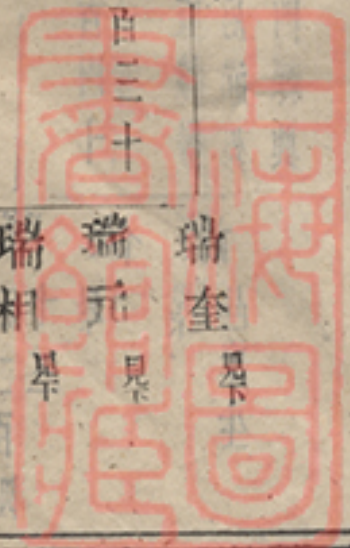 百三十
瑞奎 見下
瑞元 見下
瑞相 見下
上海圖書館藏